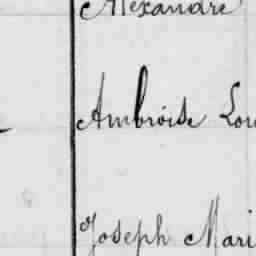 Alexandre
Ambroise Lou
Joseph Mari